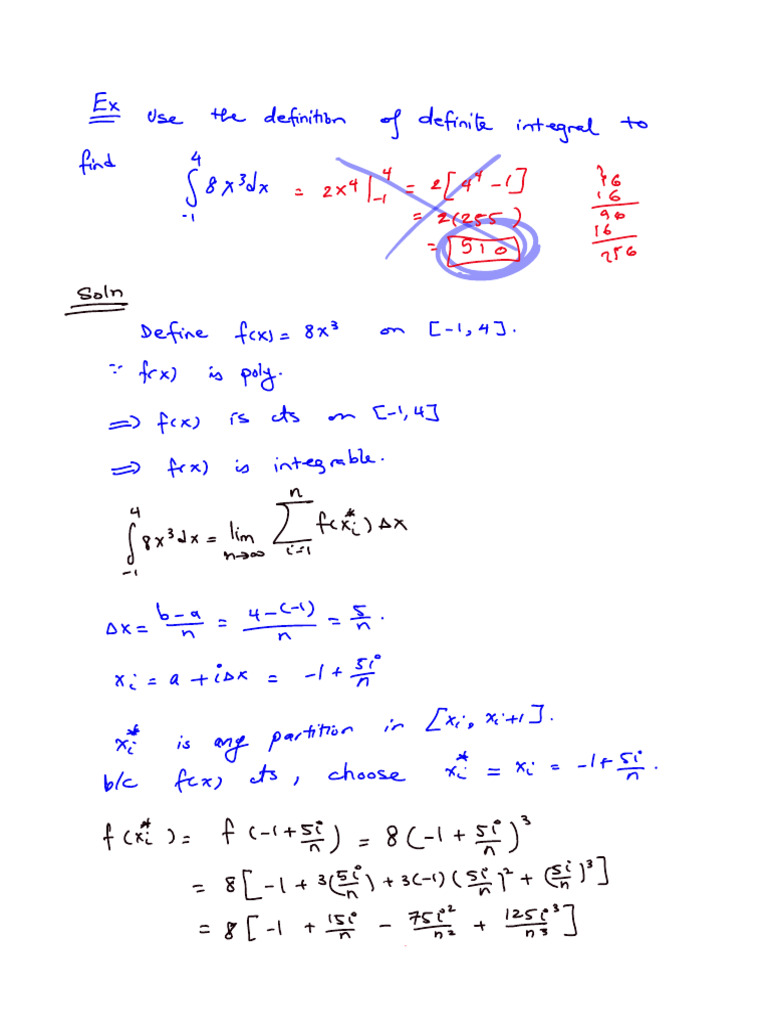 Ex Use the definition of definite integral to
find ∫_{-1}^{4} 8x³dx = 2x⁴|_{-1}^{4} = 2[4⁴ -1]
= 2(255)
= 510
16
16
96
16
256
Soln
Define f(x) = 8x³ on [-1,4].
∵ f(x) is poly.
⇒ f(x) is cts on [-1,4]
⇒ f(x) is integrable.
∫_{-1}^{4} 8x³dx = lim_{n→∞} ∑_{i=1}^{n} f(x_i^*) Δx
Δx = b-a/n = 4-(-1)/n = 5/n.
x_i = a + iΔx = -1 + 5i/n
x_i^* is any partition in [x_i, x_{i+1}].
b/c f(x) cts, choose x_i^* = x_i = -1+5i/n.
f(x_i^*) = f(-1+5i/n) = 8(-1 + 5i/n)³
= 8[-1 + 3(5i/n) + 3(-1)(5i/n)² + (5i/n)³]
= 8[-1 + 15i/n - 75i²/n² + 125i³/n³]